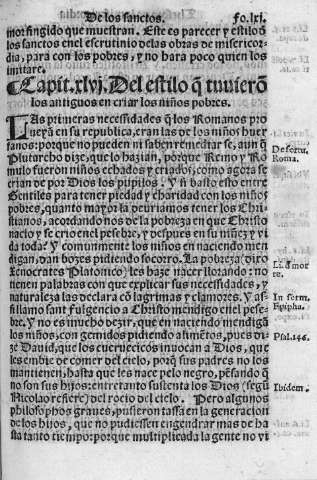 De los sanctos. Fo.lxj.
mor fingido que muestran. Este es parecer y estilo d̃
los sanctos en el escrutinio delas obras de misericor-
dia, para con los pobres, y no hara poco quien los
imitare.
Capit.xlvj. Del estilo q̃ tuuierõ
los antiguos en criar los niños pobres.
LAs primeras necessidades q̃ los Romanos pro
ueyã en su republica, eran las de los niños huer
fanos: porque no pueden ni saben remediar se, aun q̃
Plutarcho dize, que lo hazian, porque Remo y Ro
mulo fueron niños echados y criados, como agora se
crian de por Dios los pupilos. Y si basto esto entre
Gentiles para tener piedad y charidad con los niños
pobres, quanto mayor la deurianos tener los Chri
stianos, acordando nos de la pobreza en que Christo
nacio y se crio en el pesebre, y despues en su niñez y vi
da toda? Y comunmente los niños en naciendo men
digan, dan bozes pidiendo socorro. La pobreza (dixo
Xenocrates Platonico) les haze nacer llorando: no
tienen palabras con que explicar sus necessidades, y
naturaleza las declara cõ lagrimas y clamores. Y as-
si llamo sant Fulgencio a Christo mendigo en el pese-
bre. Y no es mucho dezir, que en naciendo mendigã
los niños, con gemidos pidiendo alimẽtos, pues di-
ze Dauid, que los cueruezicos inuocan a Dios, que
les embie de comer del cielo, porq̃ sus padres no los
mantienen, hasta que les nace pelo negro, pẽsando q̃
no son sus hijos: entretanto sustenta los Dios (segũ
Nicolao refiere) del rocio del cielo. Pero algunos
philosophos graues, pusieron tassa en la generacion
de los hijos, que no pudiessen engendrar mas de ha
sta tanto tiempo: porque multiplicada la gente no vi
De fortu.
Roma.
Li. d̃ mor
te.
In serm.
Epipha.
Psal.146.
Ibidem.